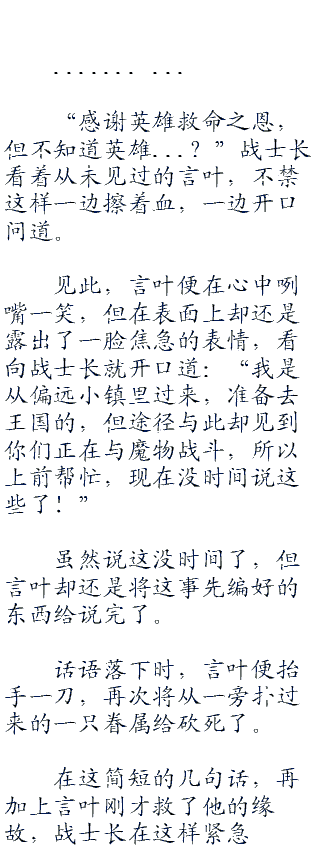 ....... ...
“感谢英雄救命之恩，
但不知道英雄...？”战士长
看着从未见过的言叶，不禁
这样一边擦着血，一边开口
问道。
见此，言叶便在心中咧
嘴一笑，但在表面上却还是
露出了一脸焦急的表情，看
向战士长就开口道：“我是
从偏远小镇里过来，准备去
王国的，但途径与此却见到
你们正在与魔物战斗，所以
上前帮忙，现在没时间说这
些了！”
虽然说这没时间了，但
言叶却还是将这事先编好的
东西给说完了。
话语落下时，言叶便抬
手一刀，再次将从一旁扑过
来的一只眷属给砍死了。
在这简短的几句话，再
加上言叶刚才救了他的缘
故，战士长在这样紧急